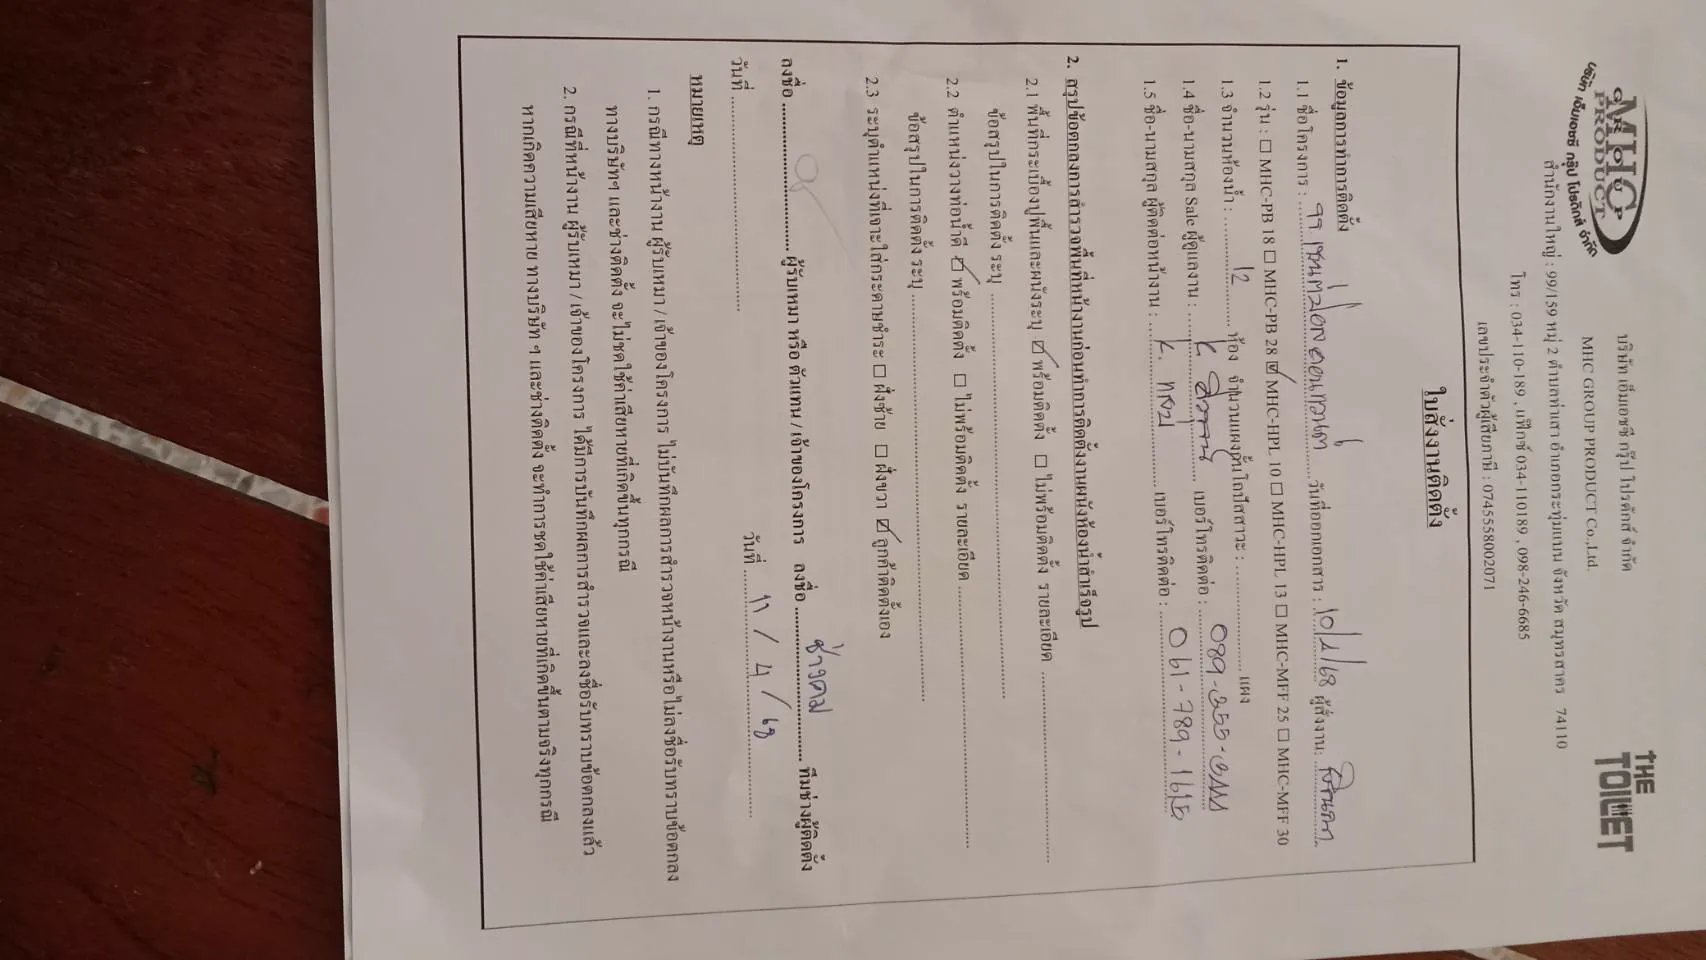 MHC
GROUP
PRODUCT
บริษัท เอ็มเอชซี กรุ๊ป โปรดักส์ จำกัด
บริษัท เอ็มเอชซี กรุ๊ป โปรดักส์ จำกัด
MHC GROUP PRODUCT Co.,Ltd.
สำนักงานใหญ่ : 99/159 หมู่ 2 ตำบลท่าเสา อำเภอกระทุ่มแบน จังหวัด สมุทรสาคร 74110
โทร : 034-110-189 , แฟ็กซ์ 034-110189 , 098-246-6685
เลขประจำตัวผู้เสียภาษี : 0745558002071
THE
TOILET
ใบสั่งงานติดตั้ง
1. ข้อมูลการทำการติดตั้ง
1.1 ชื่อโครงการ : รร. วันที่ออกเอกสาร : 10/4/68 ผู้สั่งงาน:
1.2 รุ่น : ☐ MHC-PB 18 ☐ MHC-PB 28 ☑ MHC-HPL 10 ☐ MHC-HPL 13 ☐ MHC-MFF 25 ☐ MHC-MFF 30
1.3 จำนวนห้องน้ำ : 12 ห้อง จำนวนแผงกั้นโถปัสสาวะ : แผง
1.4 ชื่อ-นามสกุล Sale ผู้ดูแลงาน : K. เบอร์โทรติดต่อ : 089-255-
1.5 ชื่อ-นามสกุล ผู้ติดต่อหน้างาน : K. เบอร์โทรติดต่อ : 061-789-1615
2. สรุปข้อตกลงการสำรวจพื้นที่หน้างานก่อนทำการติดตั้งงานผนังห้องน้ำสำเร็จรูป
2.1 พื้นที่กระเบื้องปูพื้นและผนังระบุ ☑ พร้อมติดตั้ง ☐ ไม่พร้อมติดตั้ง รายละเอียด
ข้อสรุปในการติดตั้ง ระบุ
2.2 ตำแหน่งวางท่อน้ำดี ☑ พร้อมติดตั้ง ☐ ไม่พร้อมติดตั้ง รายละเอียด
ข้อสรุปในการติดตั้ง ระบุ
2.3 ระบุตำแหน่งที่เจาะใส่กระดาษชำระ ☐ ฝั่งซ้าย ☐ ฝั่งขวา ☑ ลูกค้าติดตั้งเอง
ลงชื่อ ผู้รับเหมา หรือ ตัวแทน / เจ้าของโครงการ ลงชื่อ ช่างคม ทีมช่างผู้ติดตั้ง
วันที่ วันที่ 11 / 4 / 68
หมายเหตุ
1. กรณีทางหน้างาน ผู้รับเหมา / เจ้าของโครงการ ไม่บันทึกผลการสำรวจหน้างานหรือไม่ลงชื่อรับทราบข้อตกลง
ทางบริษัทฯ และช่างติดตั้ง จะไม่ชดใช้ค่าเสียหายที่เกิดขึ้นทุกกรณี
2. กรณีที่หน้างาน ผู้รับเหมา / เจ้าของโครงการ ได้มีการบันทึกผลการสำรวจและลงชื่อรับทราบข้อตกลงแล้ว
หากเกิดความเสียหาย ทางบริษัท ฯ และช่างติดตั้ง จะทำการชดใช้ค่าเสียหายที่เกิดขึ้นตามจริงทุกกรณี